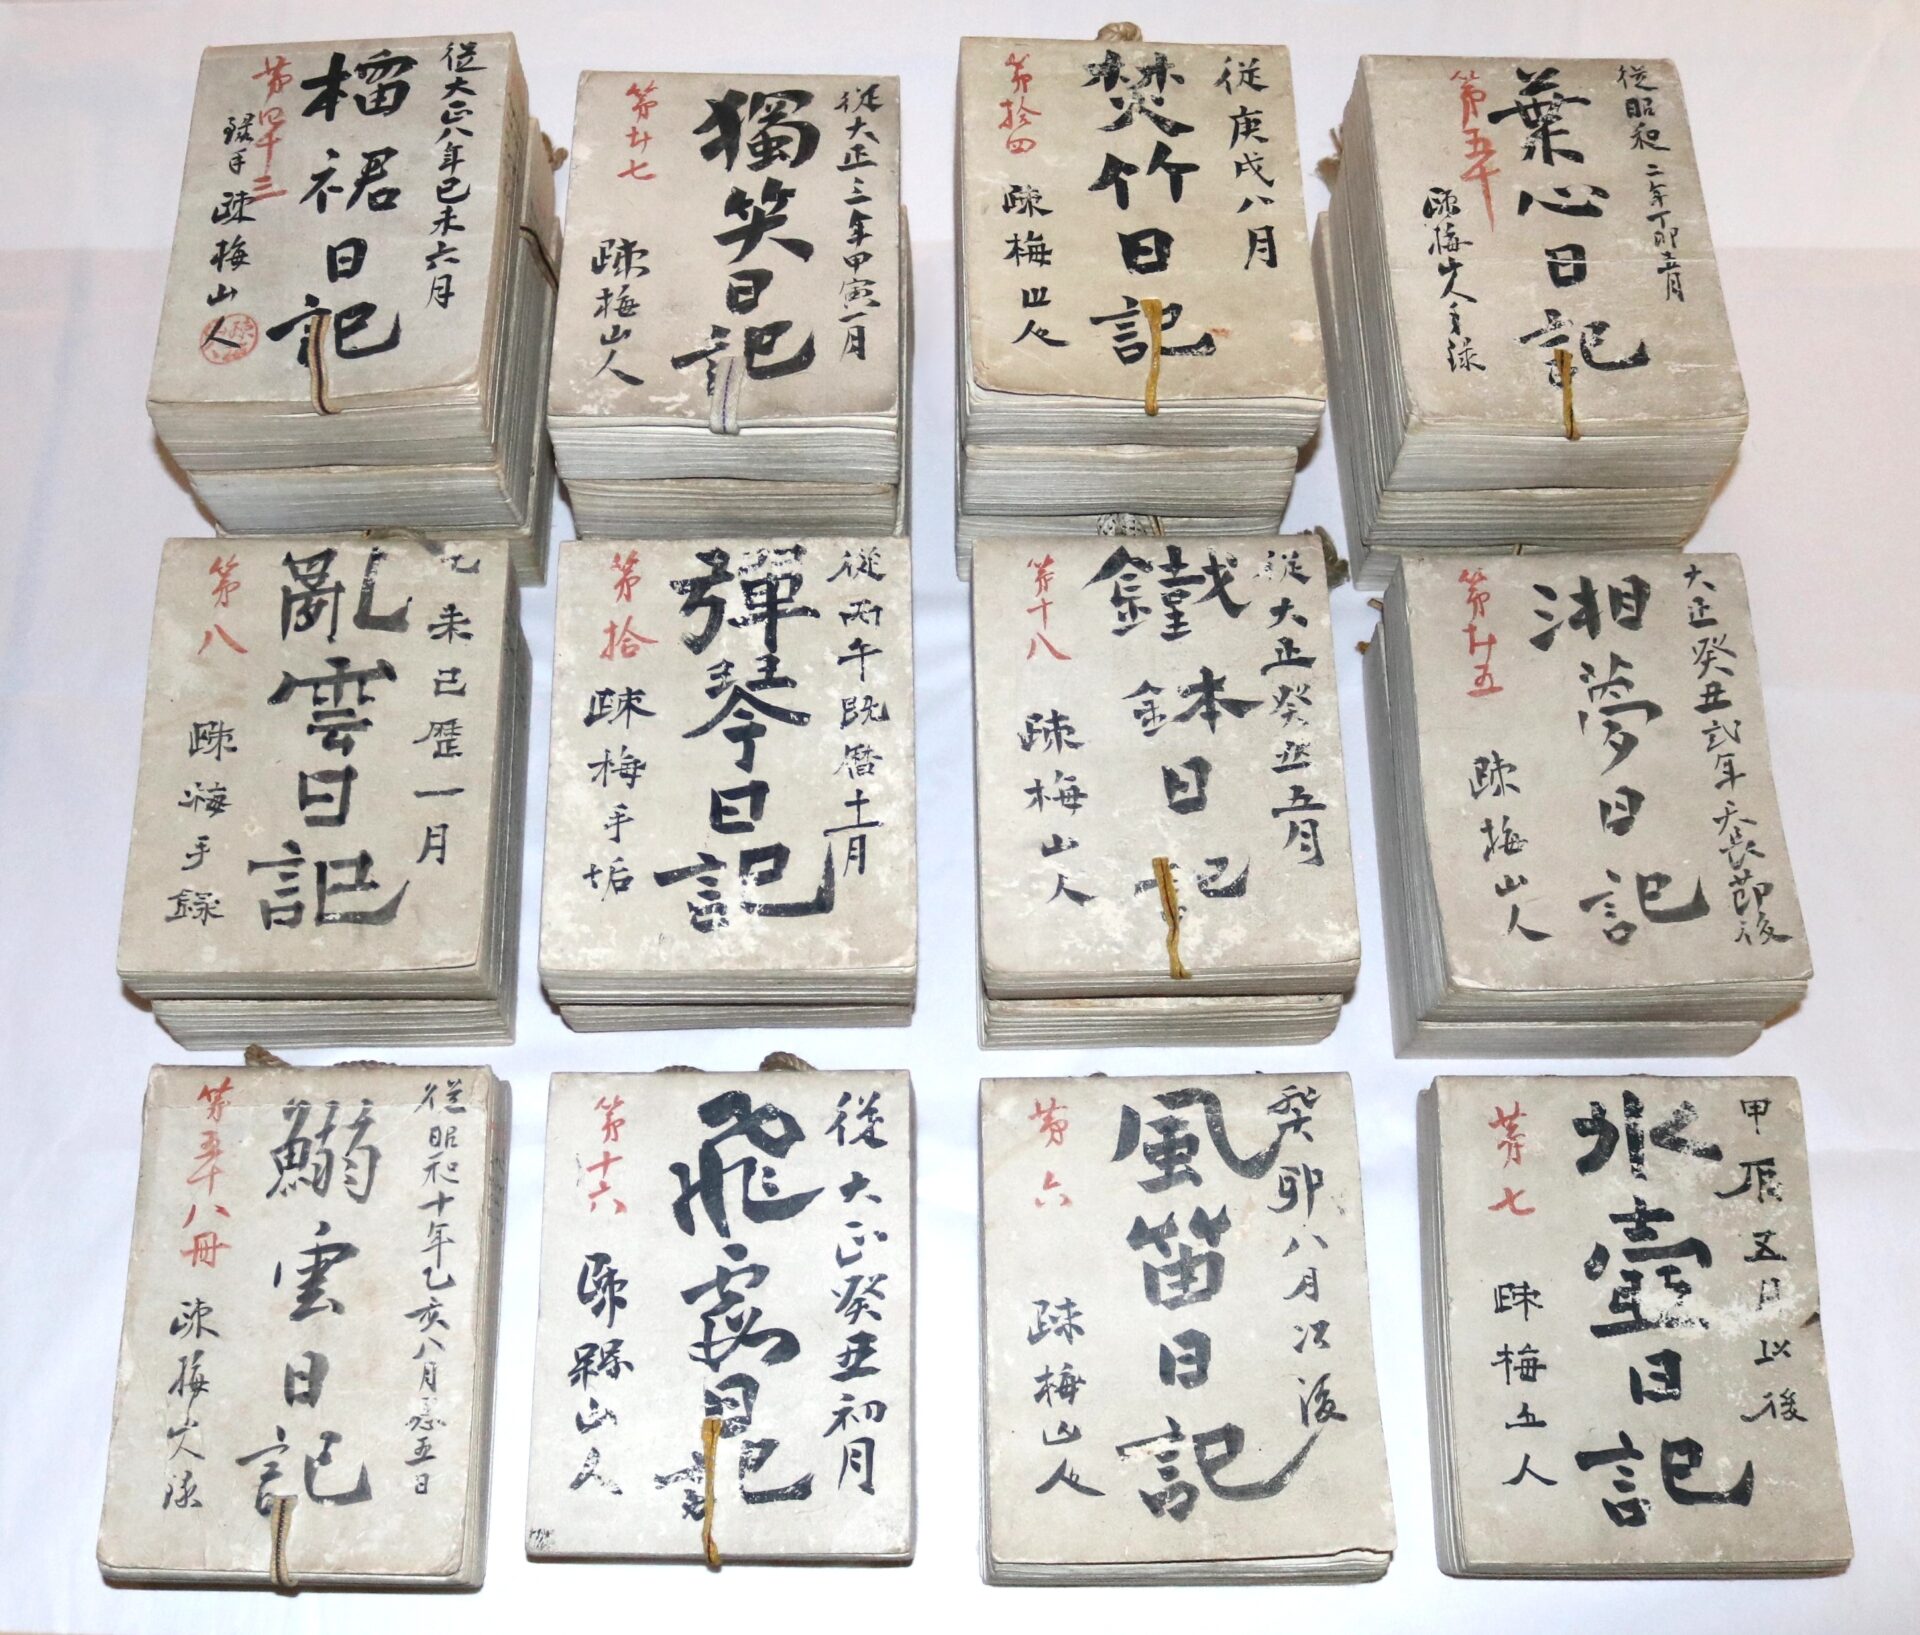 従大正八年己未六月
榴裙日記
第四十三
録手
疎梅山人
従大正三年甲寅一月
獨笑日記
第廿七
疎梅山人
従庚戌八月
焚竹日記
第拾四
疎梅山人
従昭和二年丁卯五月
葉心日記
第五十
疎梅山人手録
乙未已歴一月
亂雲日記
第八
疎梅手録
従丙午既暦十二月
彈琴日記
第拾
疎梅手垢
従大正癸丑五月
鐵鉢日記
第十八
疎梅山人
大正癸丑弐年天長節後
湘夢日記
第廿五
疎梅山人
従昭和十年乙亥八月念五日
鰯雲日記
第五十八冊
疎梅山人録
従大正癸丑初月
飛霞日記
第十六
疎梅山人
癸卯八月以後
風笛日記
第六
疎梅山人
甲辰五月以後
氷壺日記
第七
疎梅山人